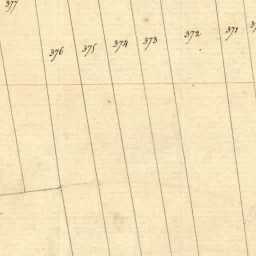 377
376 375 374 373 372 371